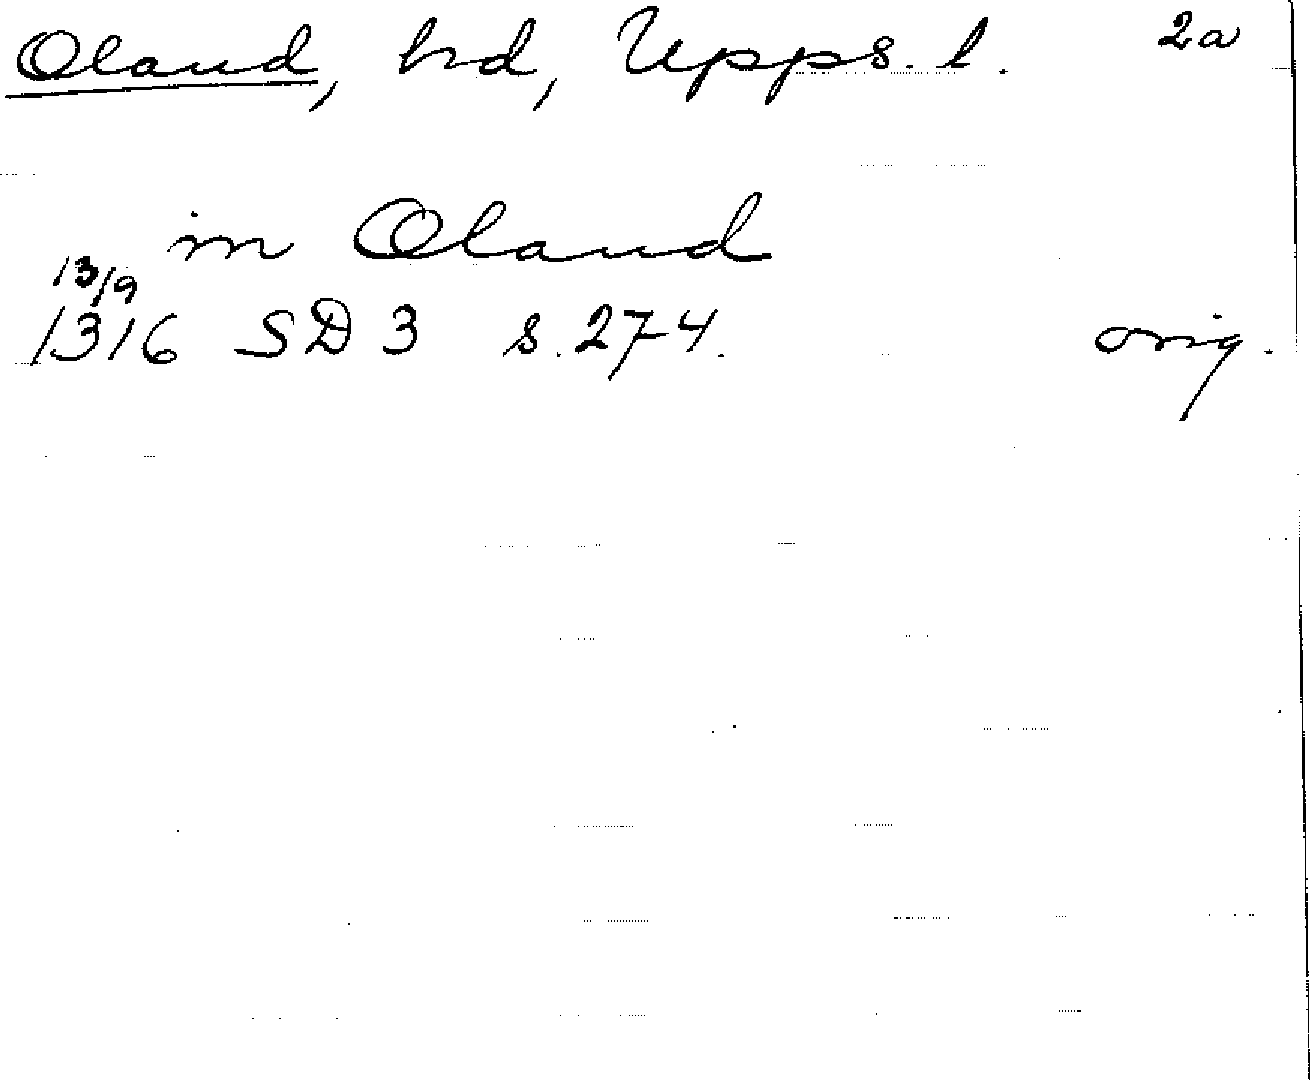 Oland, hd, Upps. l. 2a
in Oland
13/9
1316 SD 3 s. 274. orig.